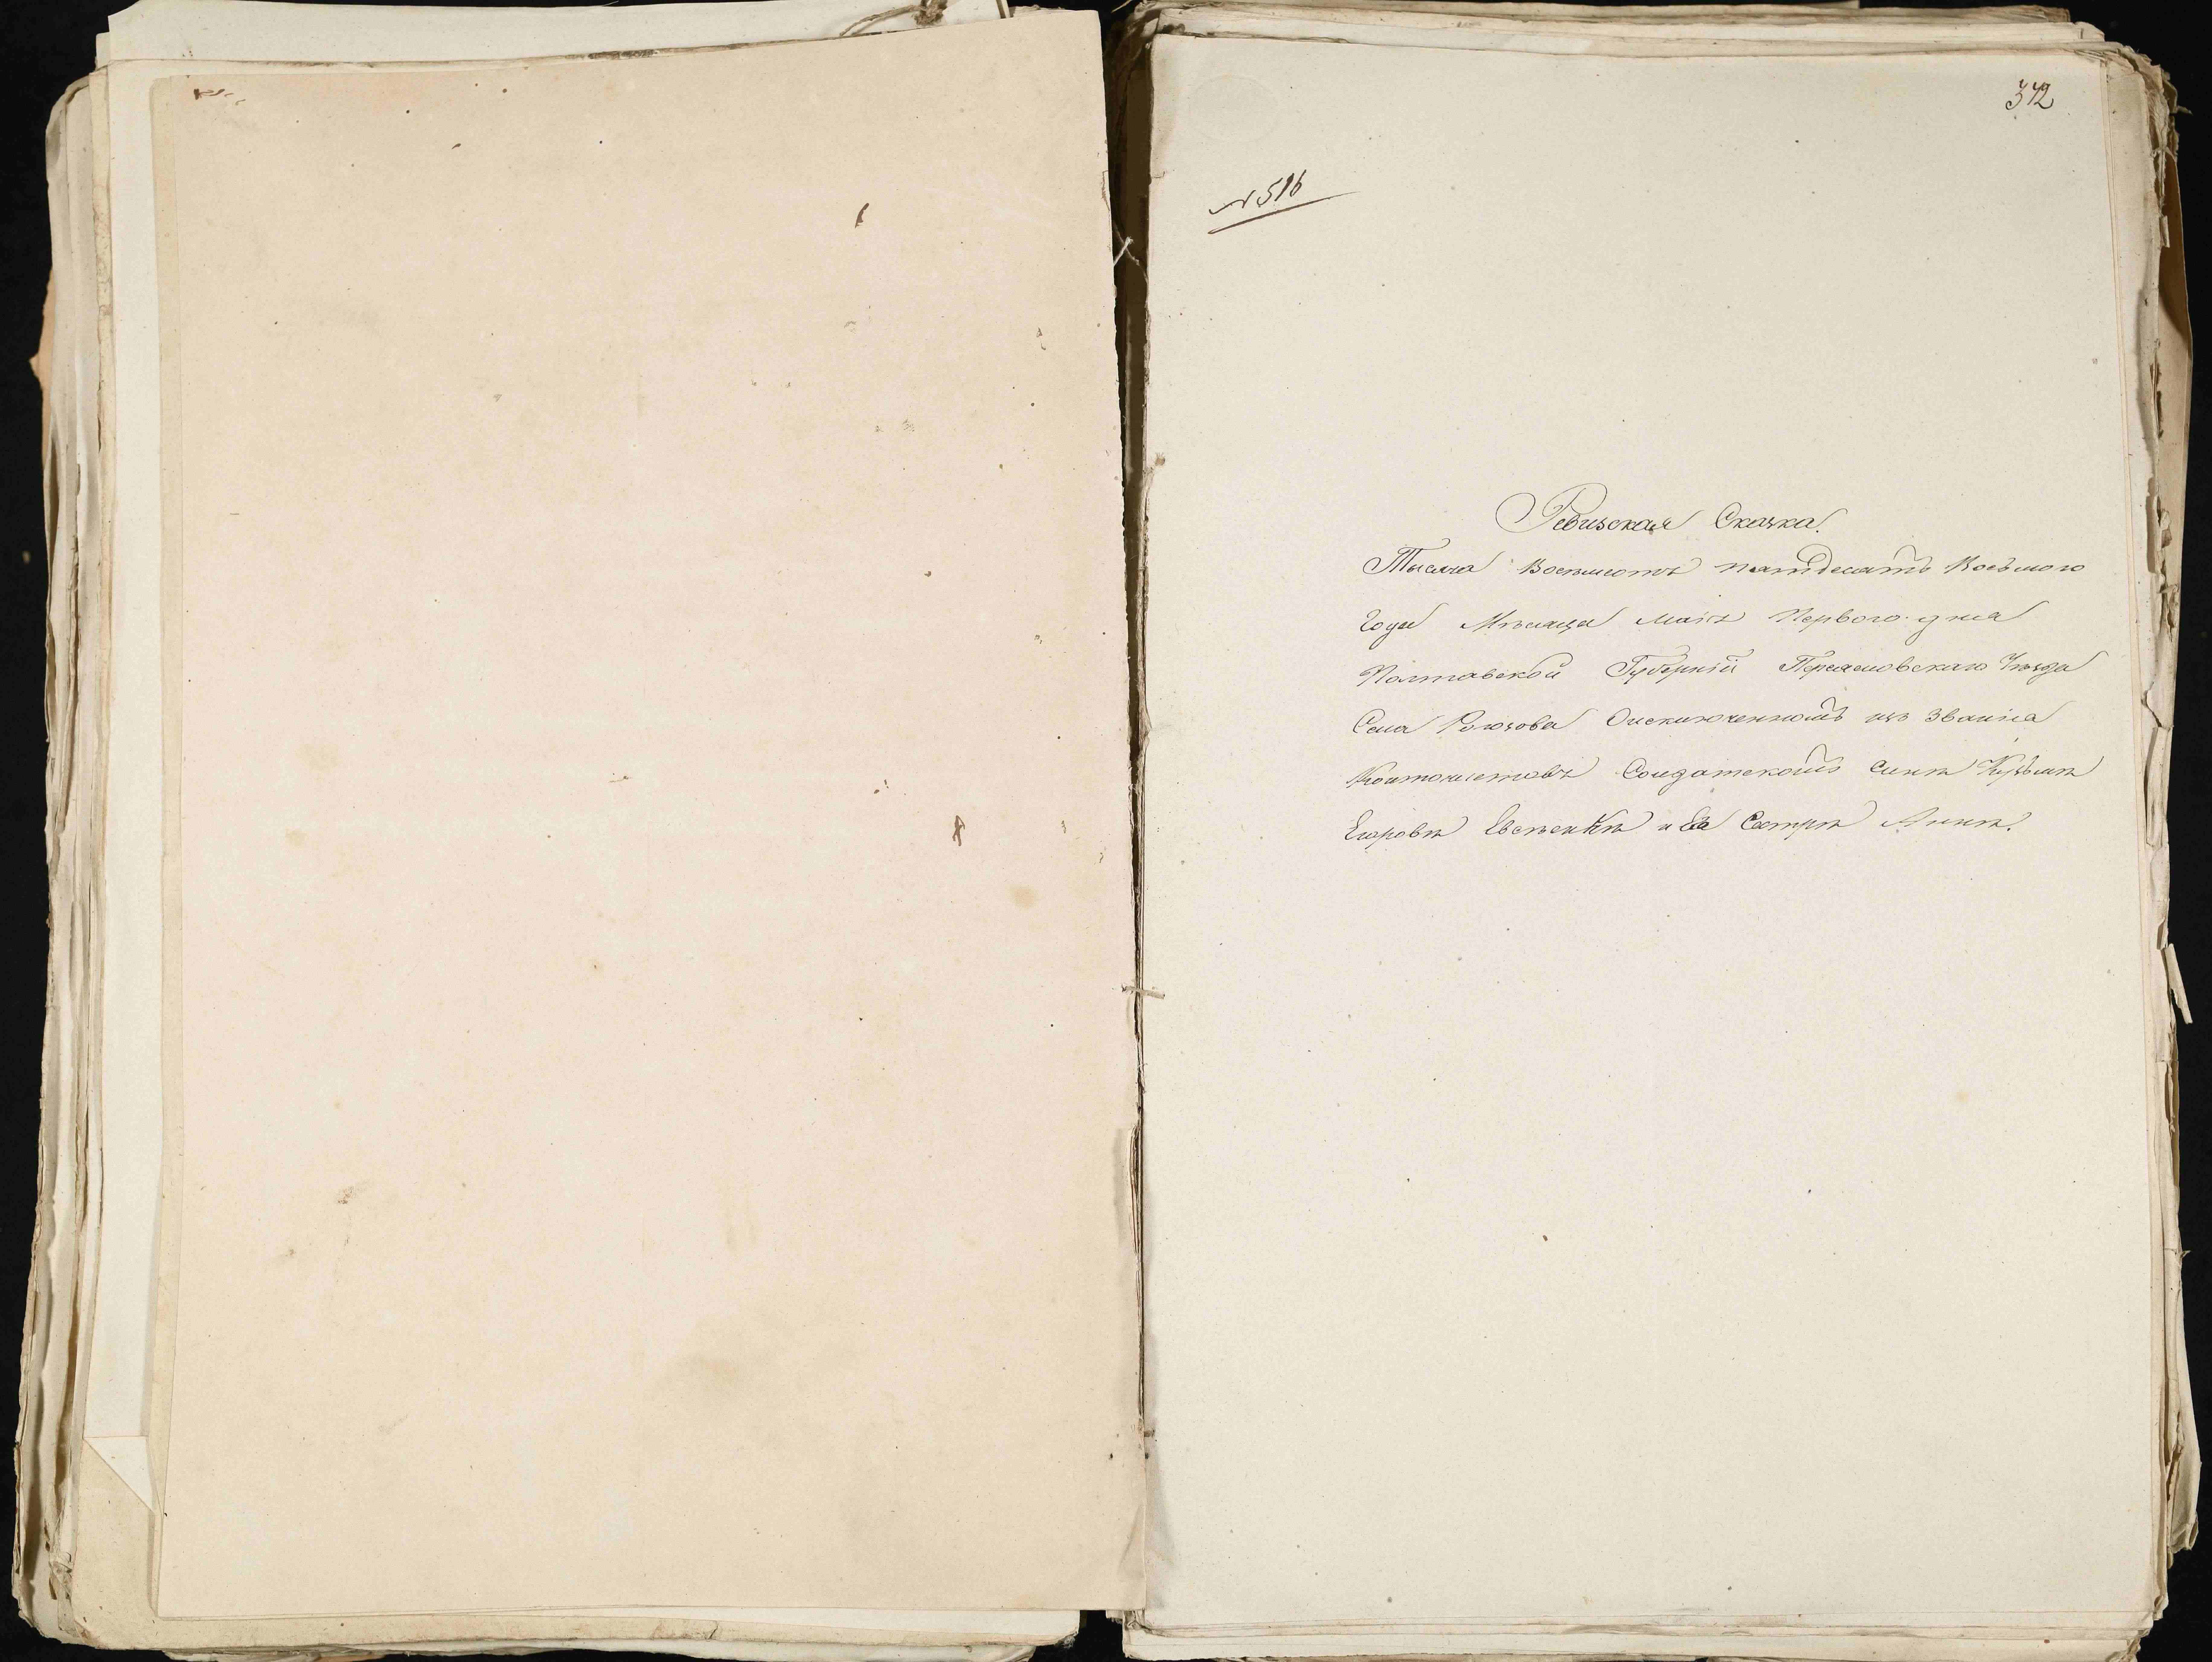 372
№ 516
Ревизская Сказка.
Тысяча Восемсотъ пятдесятъ Восьмого
Года Мѣсяца маія Первого дня
Полтавской Губерніи Переяславскаго Уѣзда
Села Оисключенномъ изъ Званія
Контонистовъ Солдатскомъ Синѣ Кузьмѣ
Егоровѣ Евсѣенкѣ и Его Сестрѣ Аннѣ.